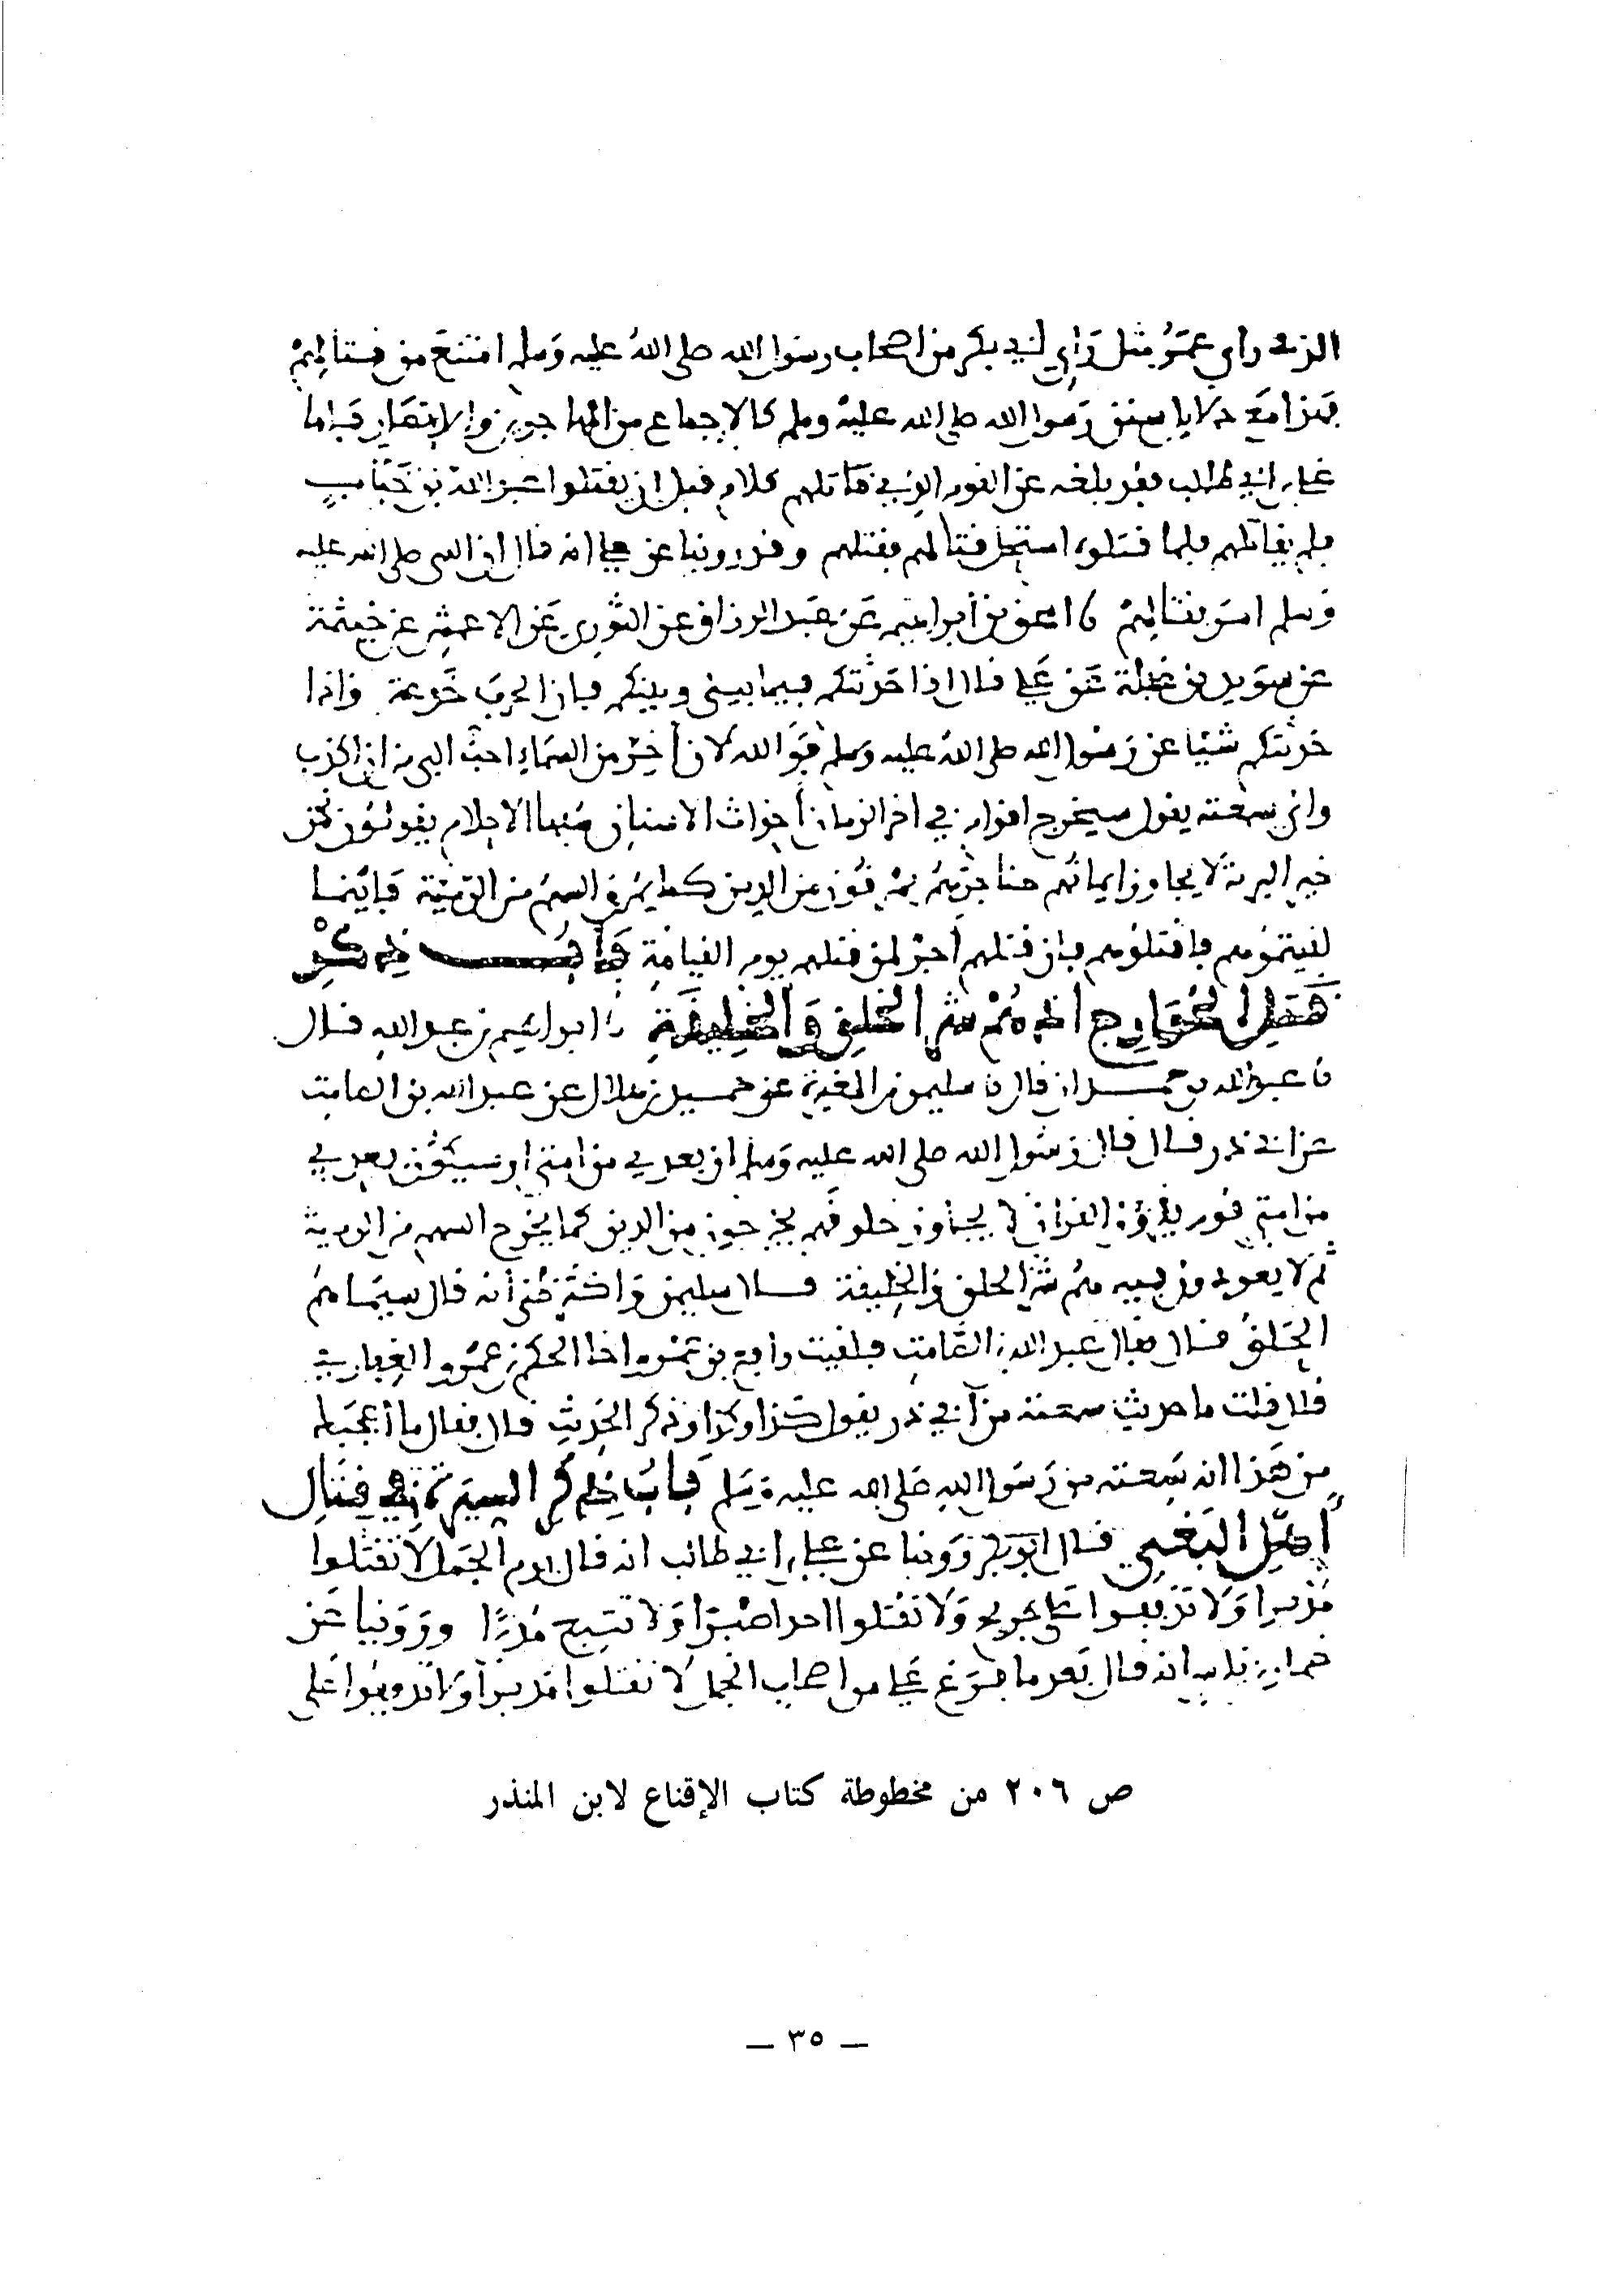 الذي رأى عمر مثل رأي أبي بكر من أصحاب رسول الله صلى الله عليه وسلم امتنع من قتالهم
فهذا مع دلايل سنن رسول الله صلى الله عليه وسلم كالإجماع من المهاجرين والأنصار فأما
علي بن أبي طالب فقد بلغه عن القوم الذي قاتلهم كلام قبل أن يقتلوا عبد الله بن خباب
فلم يقاتلهم فلما قتلوه استحل قتالهم فقتلهم وقد روينا عن علي أنه قال إن النبي صلى الله عليه
وسلم أمر بقتالهم نا إسحق بن إبراهيم عن عبد الرزاق عن الثوري عن الأعمش عن خيثمة
عن سويد بن غفلة عن علي قال إذا حدثتكم فيما بيني وبينكم فإن الحرب خدعة وإذا
حدثتكم شيئا عن رسول الله صلى الله عليه وسلم فوالله لأن أخر من السماء أحب إلي من أن أكذب
وإني سمعته يقول سيخرج أقوام في آخر الزمان أحداث الأسنان سفهاء الأحلام يقولون من
خير البرية لا يجاوز إيمانهم حناجرهم يمرقون من الدين كما يمرق السهم من الرمية فأينما
لقيتموهم فاقتلوهم فإن قتلهم أجر لمن قتلهم يوم القيامة باب ذكر
الخوارج أنهم شر الخلق والخليقة نا إبراهيم بن عبد الله قال
نا عبد الله بن حمران قال نا سليمن بن المغيرة عن حميد بن هلال عن عبد الله بن الصامت
عن أبي ذر قال قال رسول الله صلى الله عليه وسلم إن بعدي من أمتي أو سيكون بعدي
من أمتي قوم يقرؤن القرآن لا يجاوز حلوقهم يخرجون من الدين كما يخرج السهم من الرمية
ثم لا يعودون فيه هم شر الخلق والخليقة قال سليمن وأكثر ظني أنه قال سيماهم
الحلق قال فقال عبد الله بن الصامت فلقيت رافع بن عمرو أخا الحكم بن عمرو الغفاري
قال قلت ما حديث سمعته من أبي ذر يقول كذا وكذا وذكر الحديث قال فقال ما أعجبك
من هذا أنه سمعته من رسول الله صلى الله عليه وسلم باب ذكر السيرة في قتال
أهل البغي قال أبو بكر روينا عن علي بن أبي طالب أنه قال يوم الجمل لا تقتلوا
مدبرا ولا تذففوا على جريح ولا تقتلوا أحدا صبرا ولا تتبع مدبرا وروينا عن
عمار بن ياسر أنه قال بعد ما فرغ علي من أصحاب الجمل لا تقتلوا مدبرا ولا تذففوا على
ص ٢٠٦ من مخطوطة كتاب الإقناع لابن المنذر
— ٣٥ —